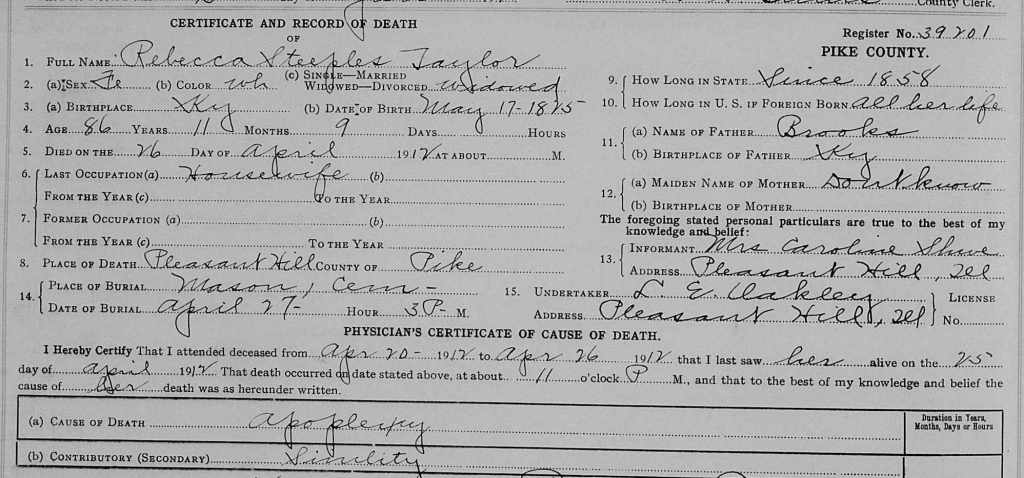 County Clerk.
CERTIFICATE AND RECORD OF DEATH
OF
Register No. 39201
PIKE COUNTY.
1. FULL NAME: Rebecca Steeples Taylor
2. (a) SEX Fe (b) COLOR Wh (c) SINGLE—MARRIED WIDOWED—DIVORCED Widowed
3. (a) BIRTHPLACE Ky (b) DATE OF BIRTH May 17-1825
4. AGE 86 YEARS 11 MONTHS 9 DAYS HOURS
5. DIED ON THE 26 DAY OF April 1912 AT ABOUT M.
6. LAST OCCUPATION (a) Housewife (b)
FROM THE YEAR (c) TO THE YEAR
7. FORMER OCCUPATION (a) (b)
FROM THE YEAR (c) TO THE YEAR
8. PLACE OF DEATH Pleasant Hill COUNTY OF Pike
9. HOW LONG IN STATE Since 1858
10. HOW LONG IN U. S. IF FOREIGN BORN All her life
11. (a) NAME OF FATHER Brooks
(b) BIRTHPLACE OF FATHER Ky
12. (a) MAIDEN NAME OF MOTHER Dont know
(b) BIRTHPLACE OF MOTHER
The foregoing stated personal particulars are true to the best of my
knowledge and belief:
13. INFORMANT Mrs Caroline
ADDRESS Pleasant Hill, Ill
14. PLACE OF BURIAL Mason, Cem -
DATE OF BURIAL April 27- HOUR 3 P- M.
15. UNDERTAKER L. E. Oakley LICENSE
ADDRESS. Pleasant Hill, Ill No.
PHYSICIAN'S CERTIFICATE OF CAUSE OF DEATH.
I Hereby Certify That I attended deceased from Apr 20- 1912 to Apr 26 1912 that I last saw her alive on the 25
day of April 1912 That death occurred on date stated above, at about 11 o'clock P M., and that to the best of my knowledge and belief the
cause of Her death was as hereunder written.
Duration in Years,
Months, Days or Hours
(a) CAUSE OF DEATH Apoplexy
(b) CONTRIBUTORY (SECONDARY) Sinility